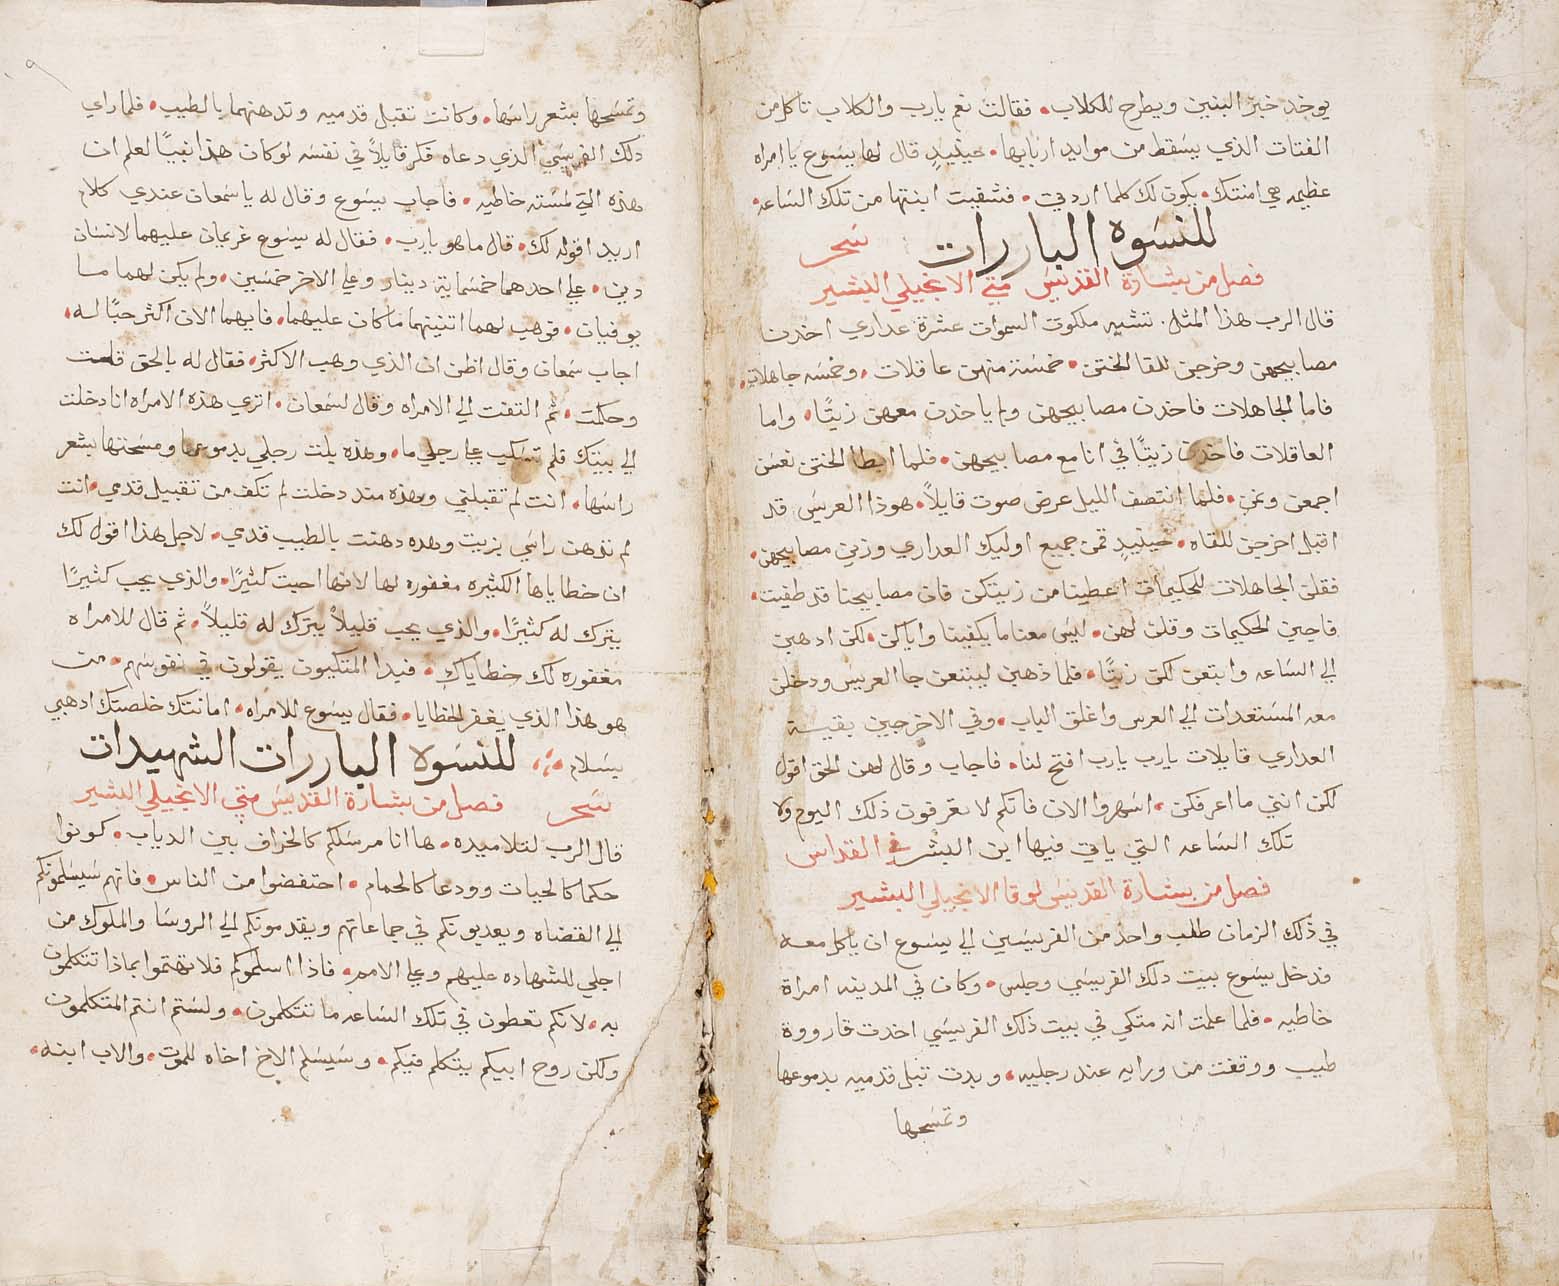 يوخد خبز البنين ويطرح للكلاب. فقالت نعم يارب والكلاب تاكل من
الفتات الذي يسقط من موايد اربابها. حينيدٍ قال لها يسوع يا امراه
عظيمه هي امنتك. يكون لك كلما اردتي. فشفيت ابنتها من تلك الساعه.
للنسوه الباررات سَحر
فصل من بشارة القديس متي الانجيلي البشير
قال الرب هذا المثل. تشبه ملكوت السموات عشرة عداري اخدن
مصابيحهن وخرجن للقا الختن. خمسَة منهن عاقلات. وخمسه جاهلات.
فاما الجاهلات فاخدن مصابيحهن ولم ياخدن معهن زيتًا. واما
العاقلات فاخدن زيتًا في انا مع مصابيحهن. فلما ابطا الختن نعسن
اجمعن ونمن. فلما انتصف الليل عرض صوت قايلاً. هوذا العريس قد
اقبل اخرجن للقاه. حينيدٍ قمن جميع اوليك العداري وزين مصابيحهن.
فقلن الجاهلات للحكيمات اعطينا من زيتكن فان مصابيحنا قد طفيت.
فاجبن الحكيمات وقلن لهن. ليس معنا ما يكفينا واياكن. لكن ادهبن
الي الساعه وابتعن لكن زيتًا. فلما ذهبن ليبتعن جا العريس ودخلن
معه المستعدات الي العرس واغلق الباب. وفي الاخر جين بقية
العداري قايلات يارب يارب افتح لنا. فاجاب وقال لهن الحق اقول
لكن انني ما اعرفكن. اسهروا الان فانكم لا تعرفون ذلك اليوم ولا
تلك الساعه التي ياتي فيها ابن البشر في القداس
فصل من بشارة القديس لوقا الانجيلي البشير
في ذلك الزمان طلب واحد من الفريسيين الي يسوع ان ياكل معه
فدخل يسوع بيت دلك الفريسي وجلس. وكان في المدينه امراة
خاطيه. فلما علمت انه متكي في بيت ذلك الفريسي اخدت قارورة
طيب ووقفت من ورايه عند رجليه. وبدت تبل قدميه بدموعها
وتمسَحها
وتمسَحها بشعر راسَها. وكانت تقبل قدميه وتدهنهما بالطيب. فلما راي
دلك الفريسي الذي دعاه فكر قايلاً في نفسه لو كان هذا نبيًا لعلم ان
هذه التي لمسته خاطيه. فاجاب يسوع وقال له يا سمعان عندي كلام
اريد اقوله لك. قال ما هو يارب. فقال له يسوع غريمان عليهما لانسان
دين. علي احدهما خمسماية دينار وعلي الاخر خمسين. ولم يكن لهما ما
يوفيان. فوهب لهما اتنينهما ما كان عليهما. فايهما الان اكثر حبًا له.
اجاب سمعان وقال اظن ان الذي وهب الاكثر. فقال له بالحق قلت
وحكمت. ثم التفت الي الامراه وقال لسمعان. اتري هذه الامراه انا دخلت
الي بيتك فلم تسكب علي رجلي ما. وهذه بلت رجلي بدموعها ومسحتها بشعر
راسها. انت لم تقبلني وهذه مند دخلت لم تكف من تقبيل قدمي. انت
لم تدهن راسي بزيت وهده دهنت بالطيب قدمي. لاجل هذا اقول لك
ان خطاياها الكثيره مغفوره لها لانها احبت كثيرًا. والذي يحب كثيرًا
يترك له كثيرًا. والذي يحب قليلاً يترك له قليلاً. ثم قال للامراه
مغفوره لك خطاياكِ. فبدا المتكيون يقولون في نفوسهم. من
هو هذا الذي يغفر الخطايا. فقال يسوع للامراه. امانتك خلصتك ادهبي
بسلام للنسَوه الباررات الشهيدات
سَحر فصل من بشارة القديس متي الانجيلي البشير
قال الرب لتلاميده. ها انا مرسلكم كالخراف بين الدياب. كونوا
حكما كالحيات وودعا كالحمام. احتفضوا من الناس. فانهم سَيسَلمونكم
الي القضاه ويعديونكم في جماعاتهم ويقدمونكم الي الروسَا والملوك من
اجلي للشهاده عليهم وعلي الامم. فاذا اسلموكم فلا تهتموا بماذا تتكلمون
به. لانكم تعطون في تلك الساعه ما تتكلمون. ولستم انتم المتكلمون
ولكن روح ابيكم يتكلم فيكم. وسَيسلم الاخ اخاه للموت. والاب ابنه.